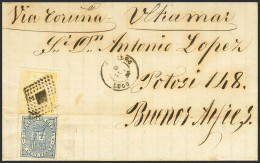 Via Coruña Ultramar
Sr. Dn. Antonio Lopez
Potosi 148.
Buenos Ayres